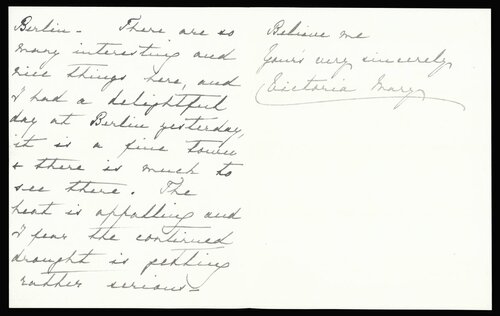 Berlin - There are so
many interesting and
nice things here, and
I had a delightful
day at Berlin yesterday,
it is a fine town
& there is much to
see there. The
heat is appalling and
I fear the continued
drought is getting
rather serious -
Believe me
Yours very sincerely
Victoria Mary